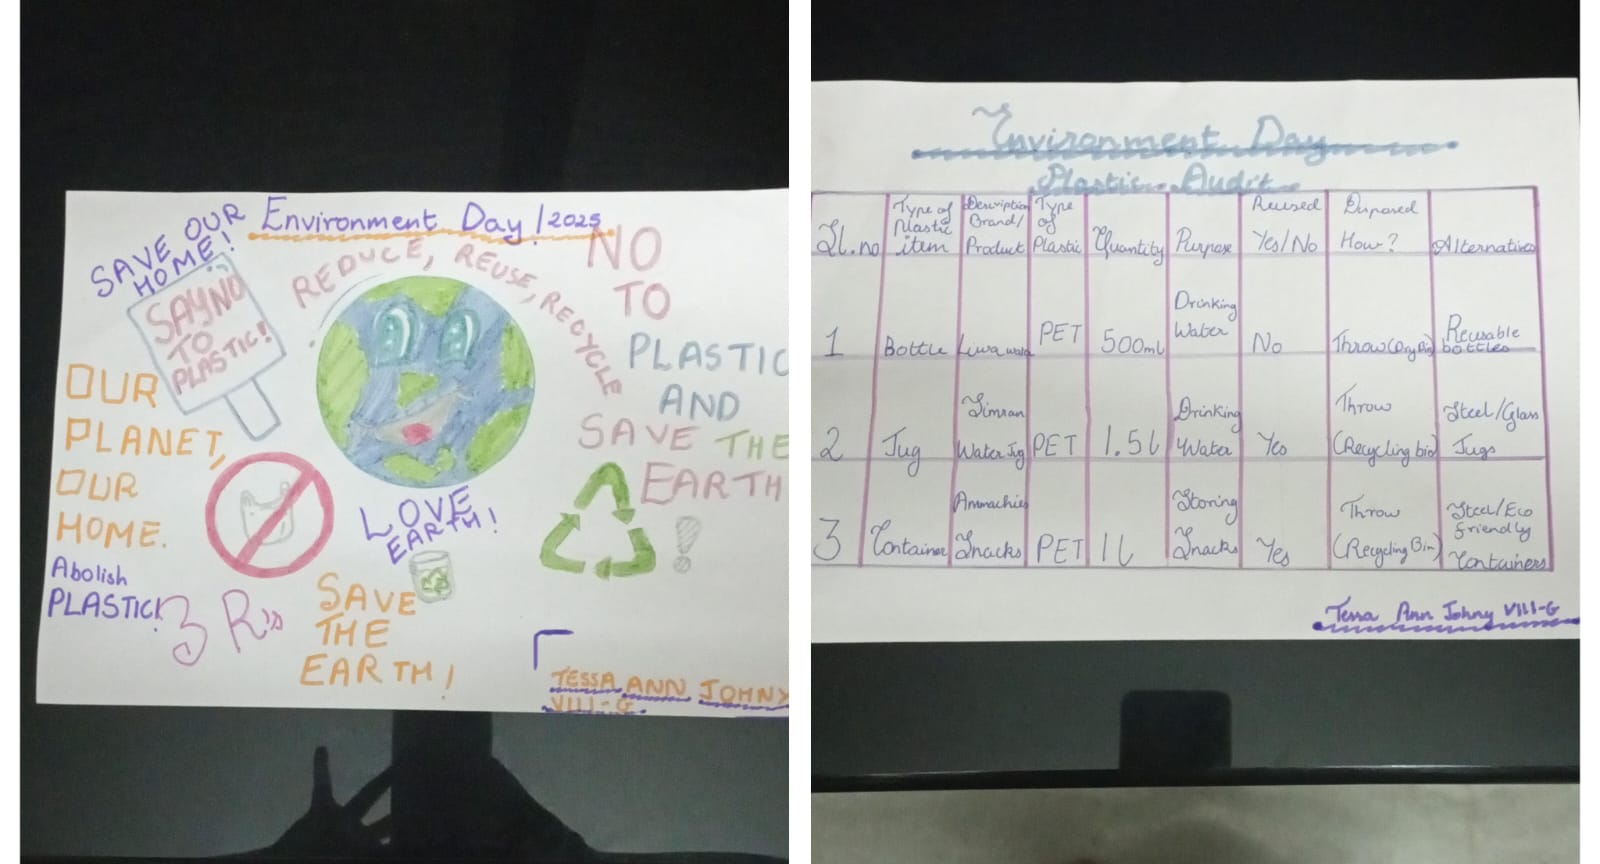 Environment Day! 2025
SAVE OUR
HOME!
REDUCE, REUSE, RECYCLE
NO
TO
PLASTIC
AND
SAVE THE
EARTH
!
SAY NO
TO
PLASTIC!
OUR
PLANET,
OUR
HOME.
LOVE
EARTH!
Abolish
PLASTIC!
3 R's
SAVE
THE
EARTH!
TESSA ANN JOHNY
VIII-G.
Environment Day
Plastic Audit
Sl. no
Type of
Plastic
item
Description
Brand/
Product
Type
of
Plastic
Quantity
Purpose
Reused
Yes/No
Disposed
How?
Alternatives
1
Bottle
Liwa
PET
500ml
Drinking
Water
No
Throw (Dry Bin)
Reusable
bottles
2
Jug
Simran
Water Jug
PET
1.5l
Drinking
Water
Yes
Throw
(Recycling bin)
Steel/Glass
Jugs
3
Container
Ammachies
Snacks
PET
1l
Storing
Snacks
Yes
Throw
(Recycling Bin)
Steel/Eco
friendly
Containers
Tessa Ann Johny VIII-G